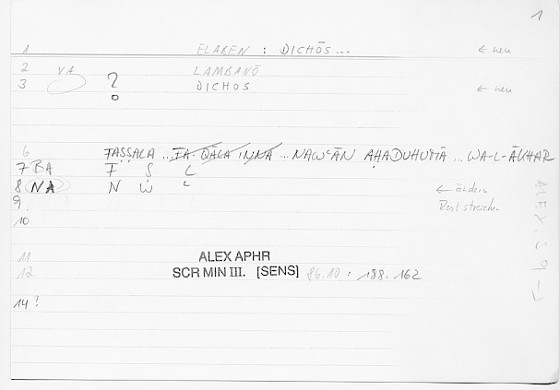 1
1 ELABEN : DICHŌS ... ← neu
2 VA LAMBANŌ
3 ? DICHOS ← neu
6 FAṢṢALA ... FA-QĀLA INNA ... NAWʿĀN AḤADUHUMĀ ... WA-L-ĀKHAR
7 BA F Ṣ L
8 NA N W ʿ ← ändern
9 Rest streichen
10
11 ALEX APHR
12 SCR MIN III. [SENS] 86.10 : 188.162
14 !
ALEX. S 9 →